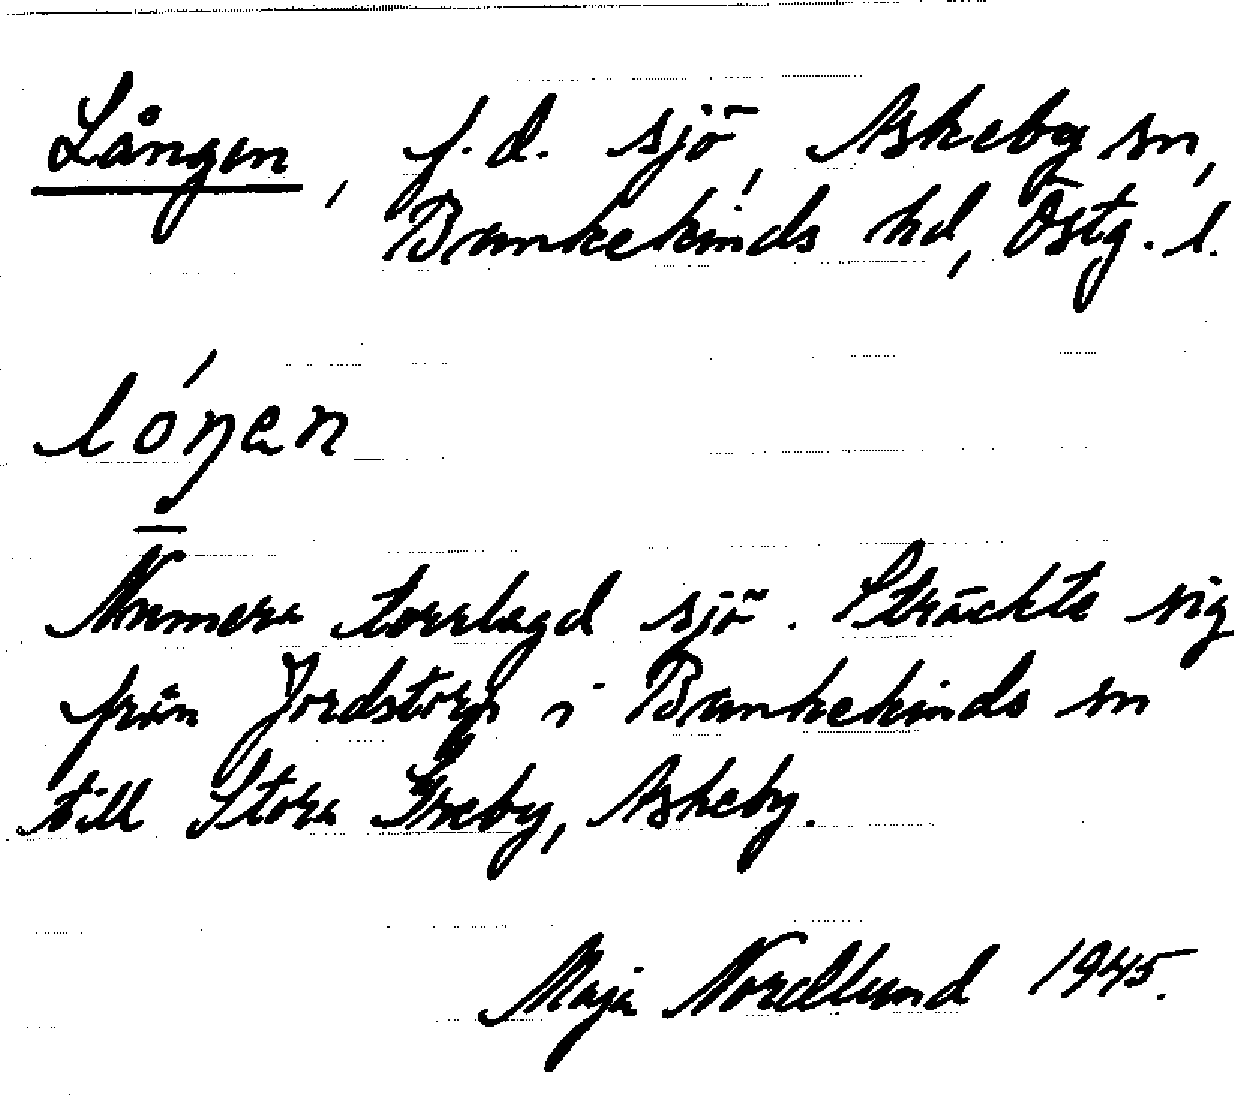 Lången, f.d. sjö, Askeby sn,
Bankekinds hd, Östg. l.
lóŋen
Numera torrlagd sjö. Sträckte sig
från Jordstorp i Bankekinds sn
till Stora Greby, Askeby.
Maja Nordlund 1945.